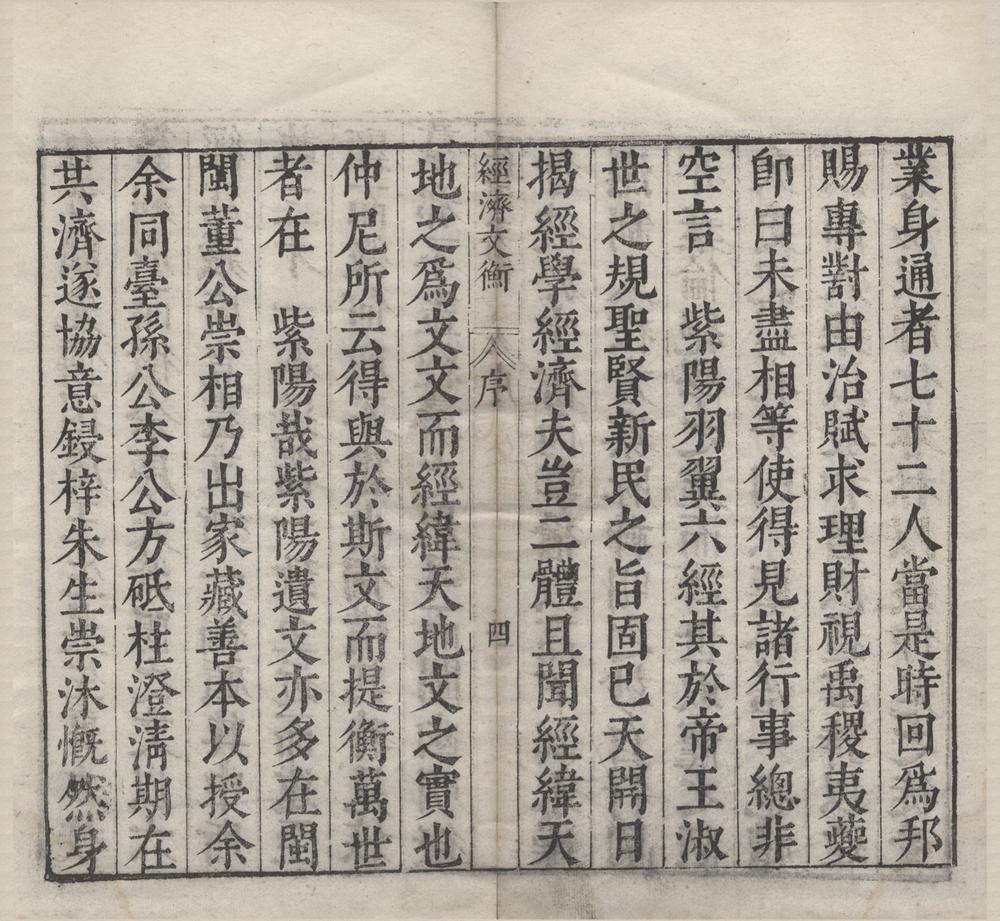 業身通者七十二人當是時回爲邦
賜專對由治賦求理財視禹稷夷夔
卽曰未盡相等使得見諸行事總非
空言　紫陽羽翼六經其於帝王淑
世之規聖賢新民之旨固已天開日
揭經學經濟夫豈二體且聞經緯天
經濟文衡　序　四
地之爲文文而經緯天地文之實也
仲尼所云得與於斯文而提衡萬世
者在　紫陽哉紫陽遺文亦多在閩
閩董公崇相乃出家藏善本以授余
余同臺孫公李公方砥柱澄清期在
共濟遂協意鋟梓朱生崇沐慨然身